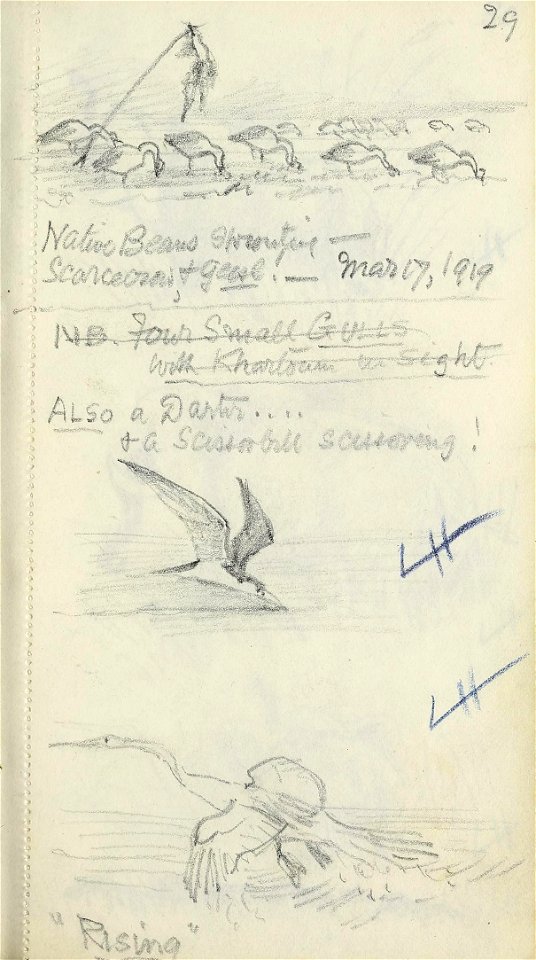 29
Native Beans Sprouting —
Scarecrow, & geese. — Mar 17, 1919
N.B. Four Small Gulls
with Khartoum in Sight
ALSO a Darter....
& a Scissorbill scissoring!
LH
LH
"Rising"